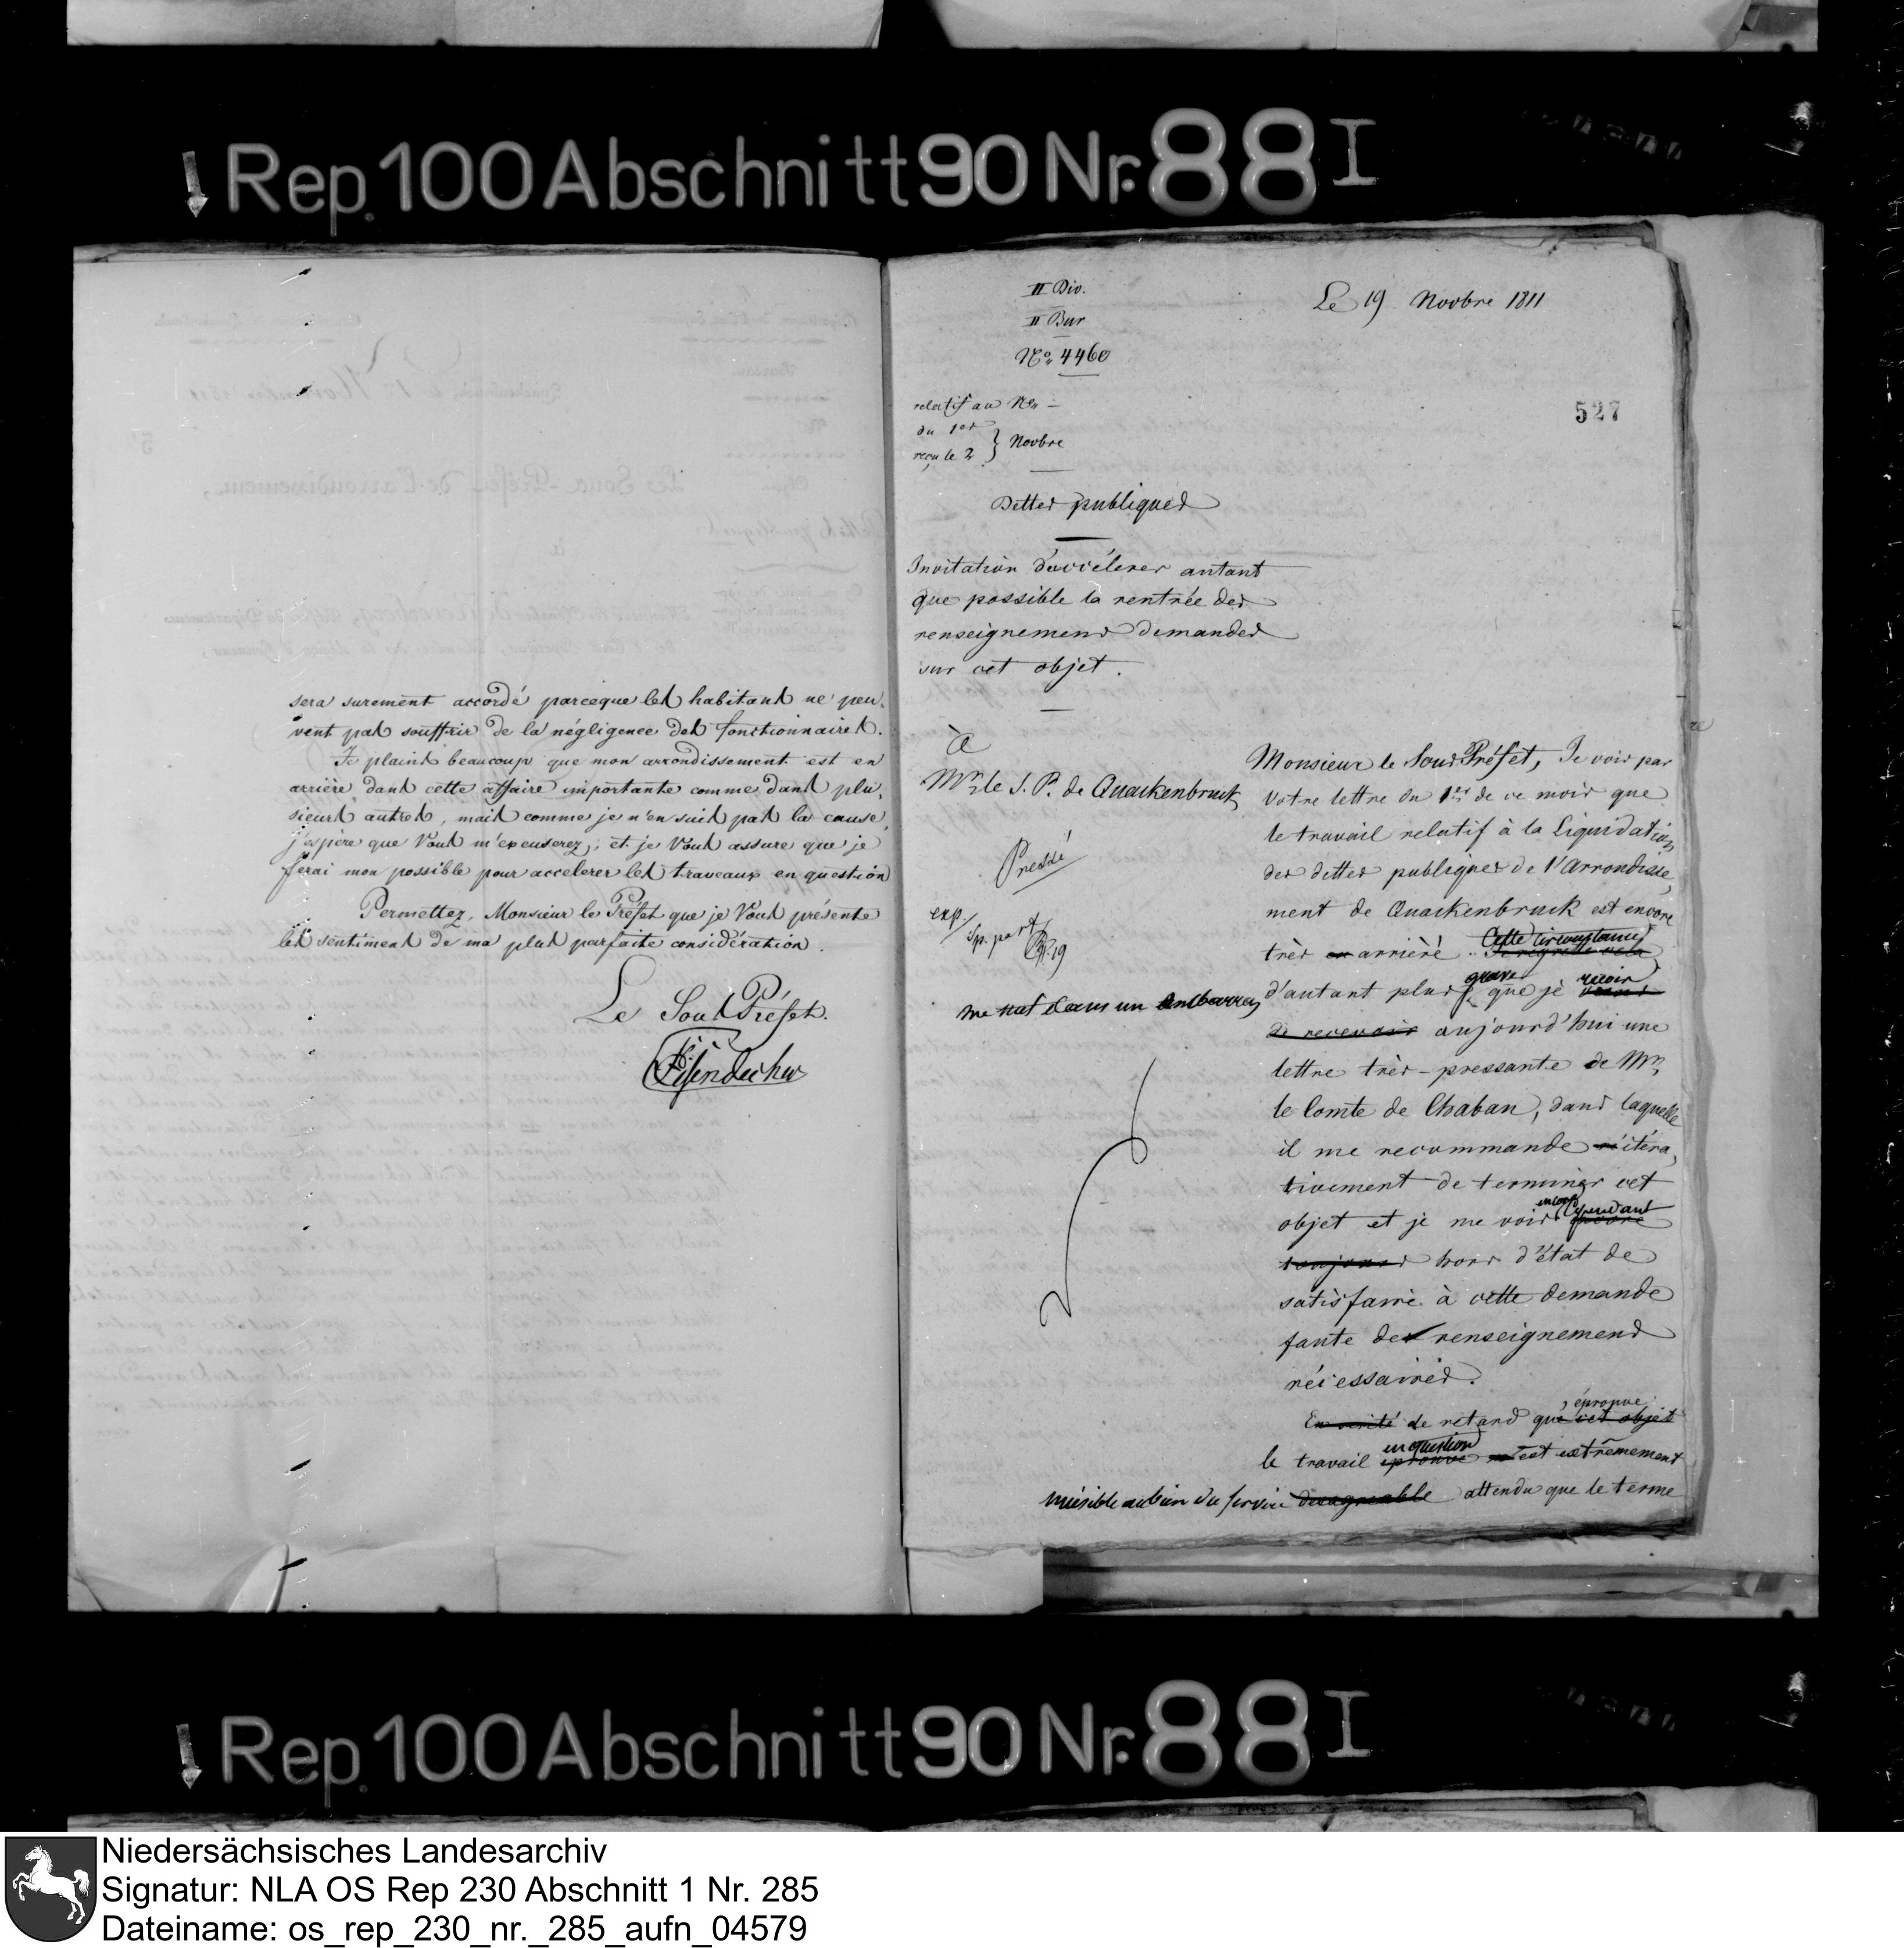 Rep. 100 Abschnitt 90 Nr. 88 I
sera surement accordé parceque les habitans ne peu-
vent pas souffrir de la négligence des fonctionnaires.
Je plains beaucoup que mon arrondissement est en
arrière, dans cette affaire importante comme dans plu-
sieurs autres, mais comme je n'en suis pas la cause,
j'espère que Vous m'excuserez; et je Vous assure que je
ferai mon possible pour accelerer les traveaux en question
Permettez, Monsieur le Préfet que je Vous présente
les sentimens de ma plus parfaite considération.
Le Sous Préfet.
II Div.
II Bur
No. 4460
Le 19 Novbre 1811
527
relatif au No. —
du 1er
reçu le 2 } Novbre
Dettes publiques
Invitation d'accélérer autant
que possible la rentrée des
renseignemens demandés
sur cet objet.
à
Mr. le S. P. de Quackenbruck
Pressé
exp.
19
Monsieur le Sous Préfet, Je vois par
votre lettre du 1er de ce mois que
le travail relatif à la Liquidation
des dettes publiques de l'Arrondisse-
ment de Quackenbruck est encore
très en arrière. Cette circonstance
me met dans un embarras
d'autant plus grave que je reçois
de recevoir aujourd'hui une
lettre très-pressante de Mr.
le Comte de Chaban, dans laquelle
il me recommande réitéra-
tivement de terminer cet
objet et je me vois encore cependant
toujours hors d'état de
satisfaire à cette demande
faute des renseignemens
nécessaires.
En vérité le retard que cet objet éprouve
le travail en question éprouve est extrêmement
nuisible au bien du service desagreable attendu que le terme
Rep. 100 Abschnitt 90 Nr. 88 I
Niedersächsisches Landesarchiv
Signatur: NLA OS Rep 230 Abschnitt 1 Nr. 285
Dateiname: os_rep_230_nr._285_aufn_04579